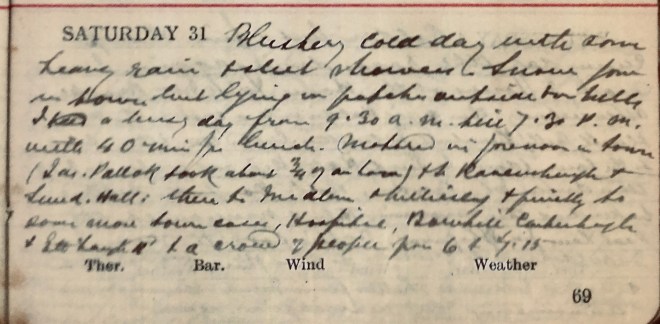 SATURDAY 31 Blustery cold day with some
heavy rain & sleet showers. Snow gone
in town but lying in patches outside on hills
I had a busy day from 9.30 a.m. till 7.30 P.M.
with 40 min for lunch. Motored in forenoon in town
(Jas. Pollok took about 3/4 of an hour) & to Ravensheugh &
Sund. Hall: then to Midlem & finally to
some more town cases, Hospital, Bowhill
& a crowd of people from 6 to 7.15
Ther. Bar. Wind Weather
69